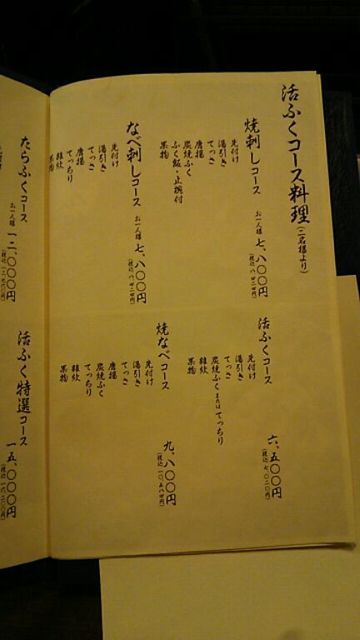 活ふぐコース料理(二名様より)
焼刺しコース お一人様 七、八〇〇円
(税込 八、四二四円)
先付け
湯引き
てっさ
唐揚
炭焼ふく
ふく飯・止椀付
果物
なべ刺しコース お一人様 七、八〇〇円
(税込 八、四二四円)
先付け
湯引き
てっさ
唐揚
てっちり
雑炊
果物
活ふくコース 六、五〇〇円
(税込 七、〇二〇円)
先付け
湯引き
てっさ
炭焼ふくまたはてっちり
雑炊
果物
焼なべコース 九、八〇〇円
(税込 一〇、五八四円)
先付け
湯引き
てっさ
唐揚
炭焼ふく
てっちり
雑炊
果物
たらふくコース お一人様 一二、〇〇〇円
活ふく特選コース 一五、〇〇〇円
(税込 一六、二〇〇円)